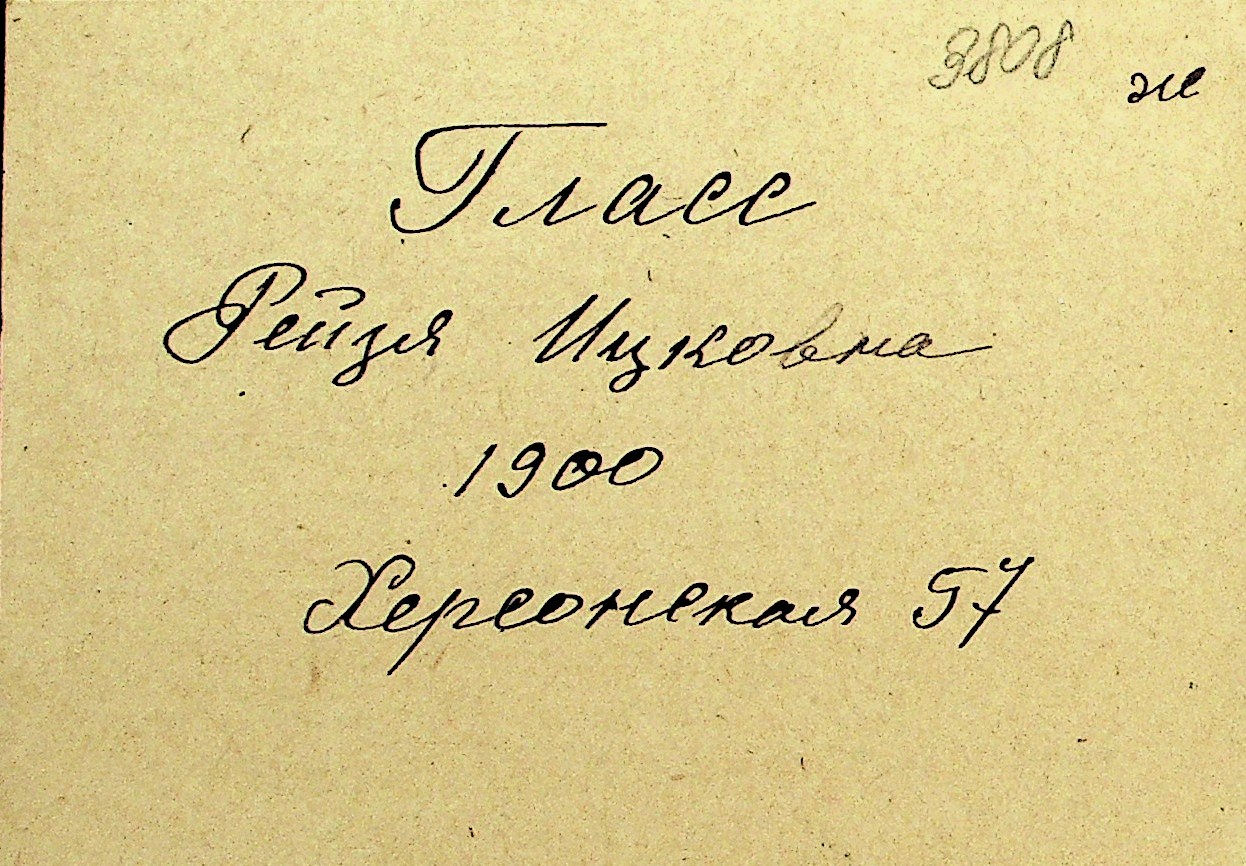 3808 ж
Гласс
Рейзя Ицковна
1900
Херсонская 57